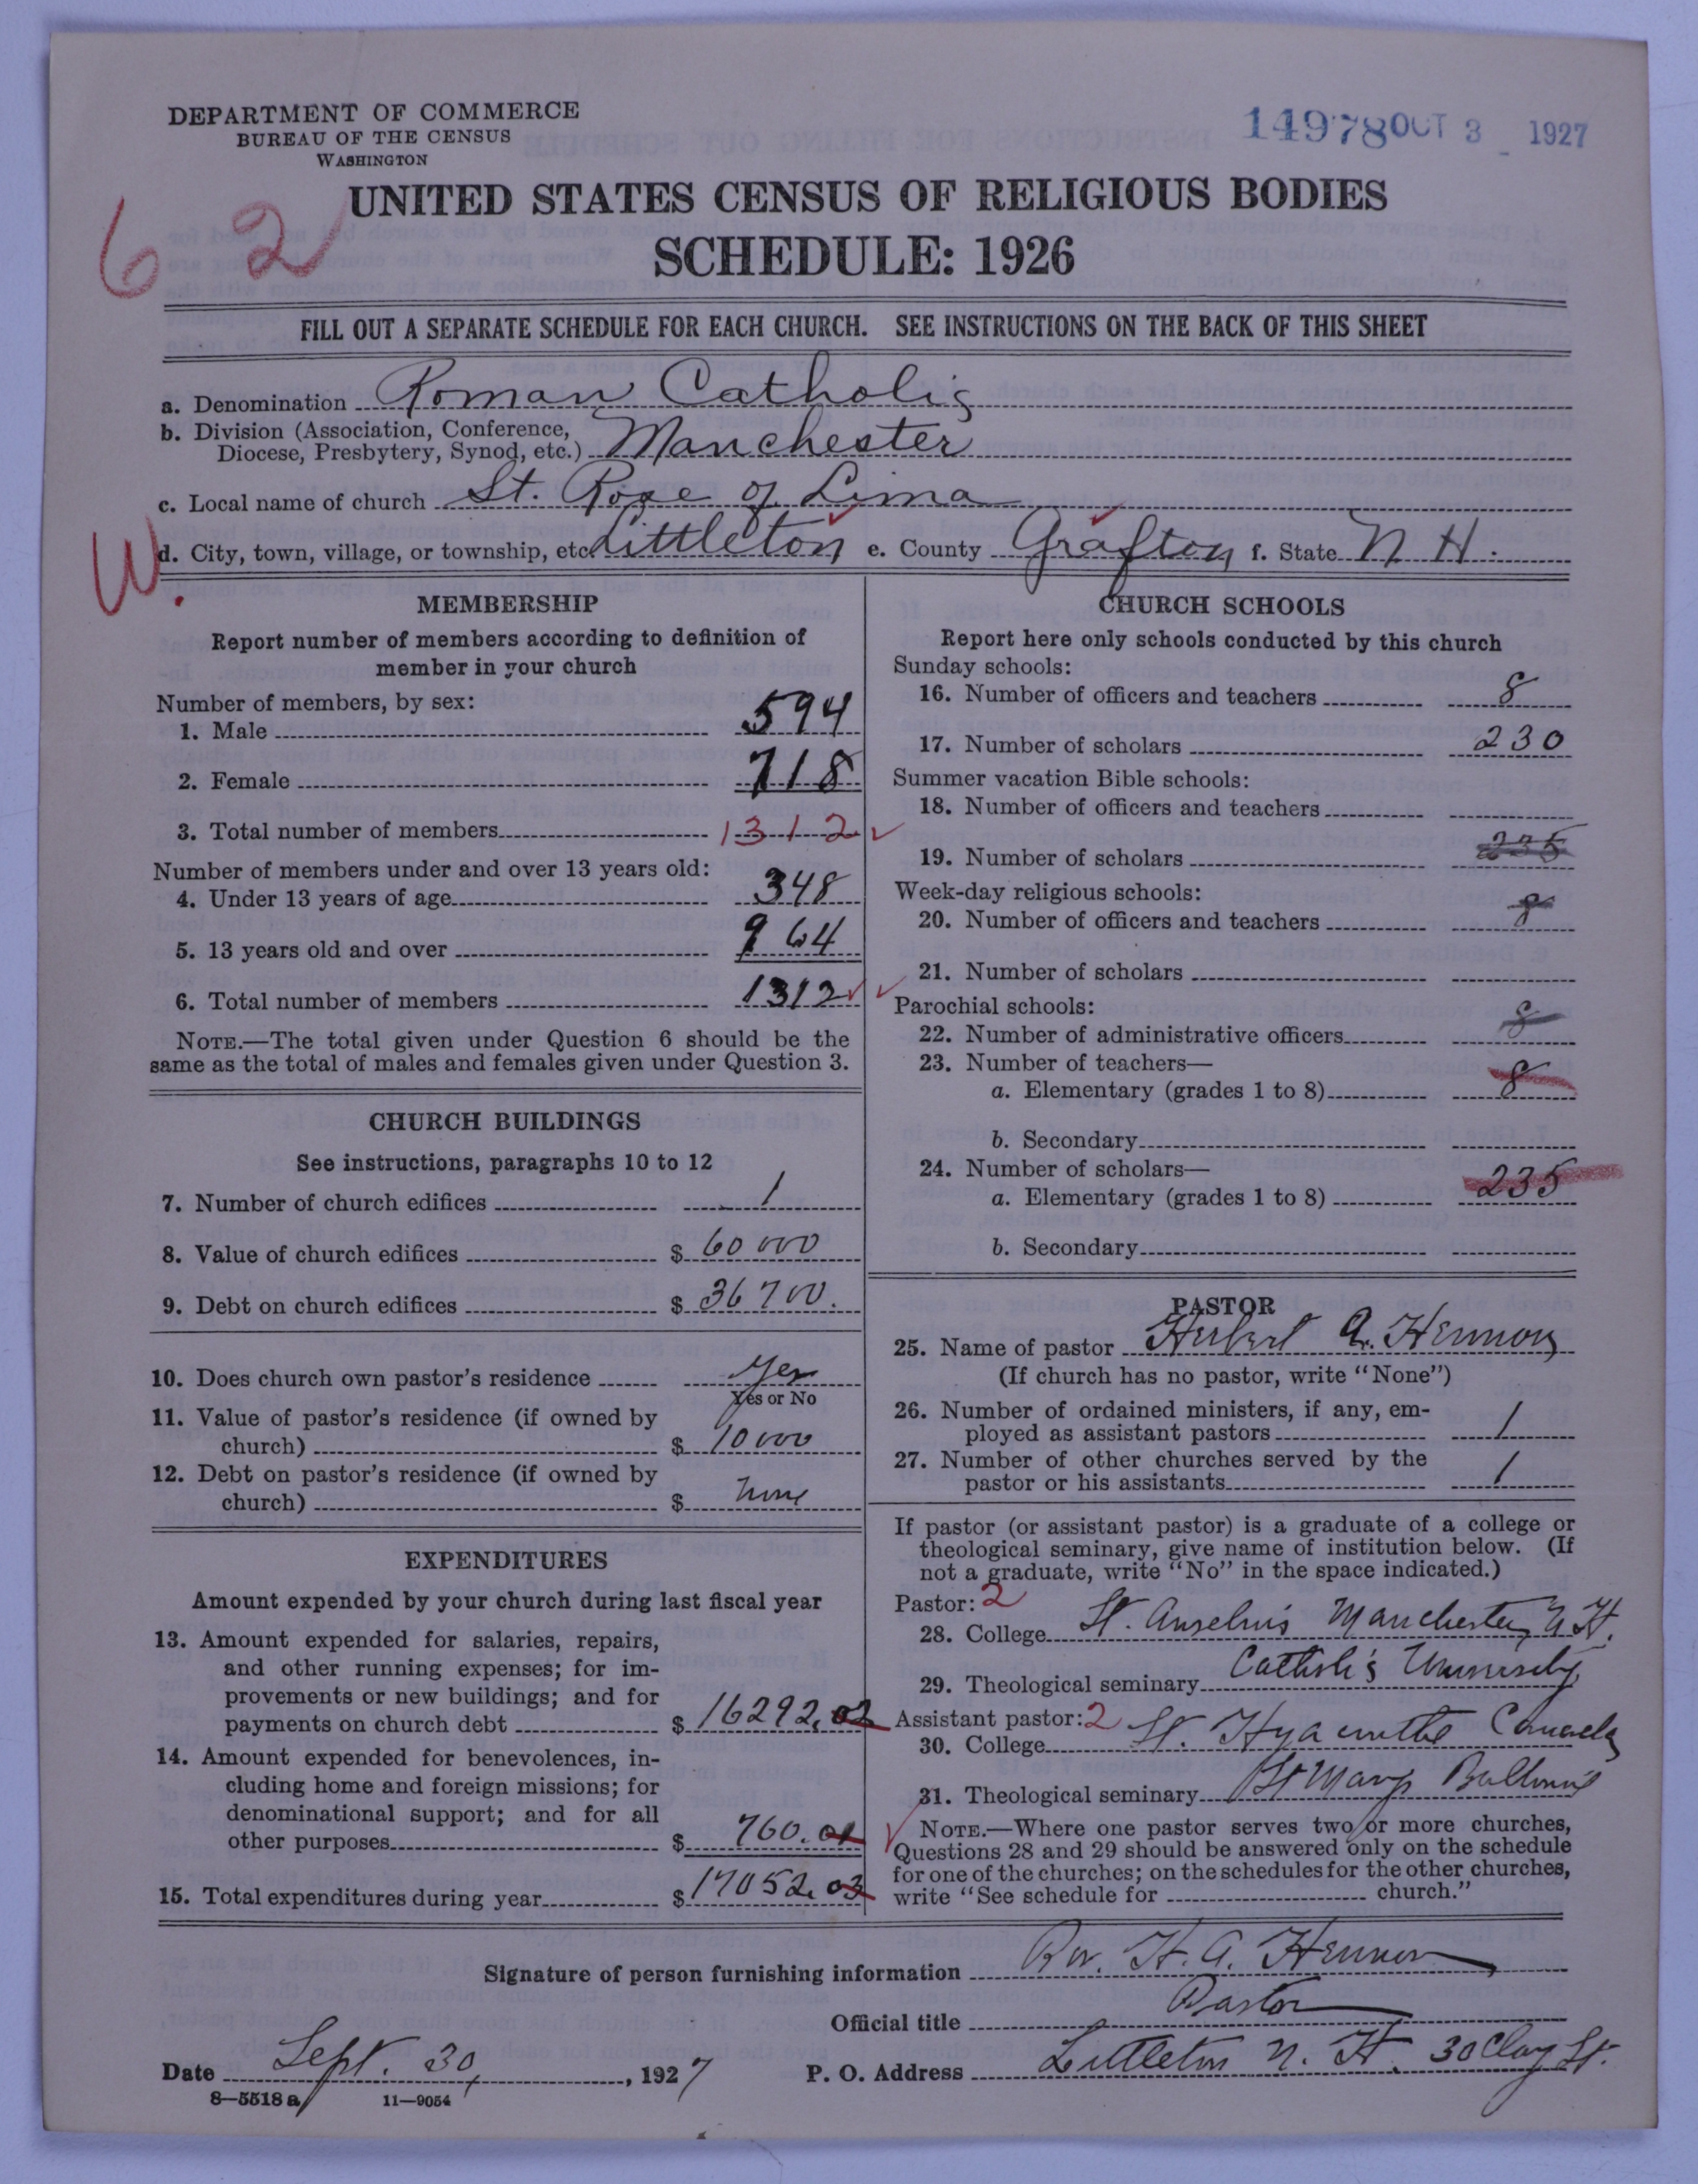 DEPARTMENT OF COMMERCE
BUREAU OF THE CENSUS
WASHINGTON
14978 OCT 3 1927
6 2
UNITED STATES CENSUS OF RELIGIOUS BODIES
SCHEDULE: 1926
FILL OUT A SEPARATE SCHEDULE FOR EACH CHURCH. SEE INSTRUCTIONS ON THE BACK OF THIS SHEET
a. Denomination Roman Catholic
b. Division (Association, Conference,
Diocese, Presbytery, Synod, etc.) Manchester
c. Local name of church St. Rose of Lima
W.
d. City, town, village, or township, etc. Littleton e. County Grafton f. State N H.
MEMBERSHIP
Report number of members according to definition of
member in your church
Number of members, by sex:
1. Male 594
2. Female 718
3. Total number of members 1312
Number of members under and over 13 years old:
4. Under 13 years of age 348
5. 13 years old and over 964
6. Total number of members 1312
NOTE.—The total given under Question 6 should be the
same as the total of males and females given under Question 3.
CHURCH BUILDINGS
See instructions, paragraphs 10 to 12
7. Number of church edifices 1
8. Value of church edifices $ 60000
9. Debt on church edifices $ 36700.
10. Does church own pastor's residence Yes
Yes or No
11. Value of pastor's residence (if owned by
church) $ 10000
12. Debt on pastor's residence (if owned by
church) $ none
EXPENDITURES
Amount expended by your church during last fiscal year
13. Amount expended for salaries, repairs,
and other running expenses; for im-
provements or new buildings; and for
payments on church debt $ 16292.02
14. Amount expended for benevolences, in-
cluding home and foreign missions; for
denominational support; and for all
other purposes $ 760.01
15. Total expenditures during year $ 17052.03
CHURCH SCHOOLS
Report here only schools conducted by this church
Sunday schools:
16. Number of officers and teachers 8
17. Number of scholars 230
Summer vacation Bible schools:
18. Number of officers and teachers
19. Number of scholars 235
Week-day religious schools:
20. Number of officers and teachers 8
21. Number of scholars
Parochial schools:
22. Number of administrative officers 8
23. Number of teachers—
a. Elementary (grades 1 to 8) 8
b. Secondary
24. Number of scholars—
a. Elementary (grades 1 to 8) 235
b. Secondary
PASTOR
25. Name of pastor Herbert A. Hennon
(If church has no pastor, write "None")
26. Number of ordained ministers, if any, em-
ployed as assistant pastors 1
27. Number of other churches served by the
pastor or his assistants 1
If pastor (or assistant pastor) is a graduate of a college or
theological seminary, give name of institution below. (If
not a graduate, write "No" in the space indicated.)
Pastor: 2
28. College St. Anselm's Manchester, N.H.
29. Theological seminary Catholic University
Assistant pastor: 2
30. College St. Hyacinthe Canada
31. Theological seminary St Mary's
NOTE.—Where one pastor serves two or more churches,
Questions 28 and 29 should be answered only on the schedule
for one of the churches; on the schedules for the other churches,
write "See schedule for church."
Signature of person furnishing information Rev. H. A. Hennon
Official title Pastor
Date Sept. 30, 1927 P. O. Address Littleton N. H. 30 Clay St.
8—5518 a 11—9054